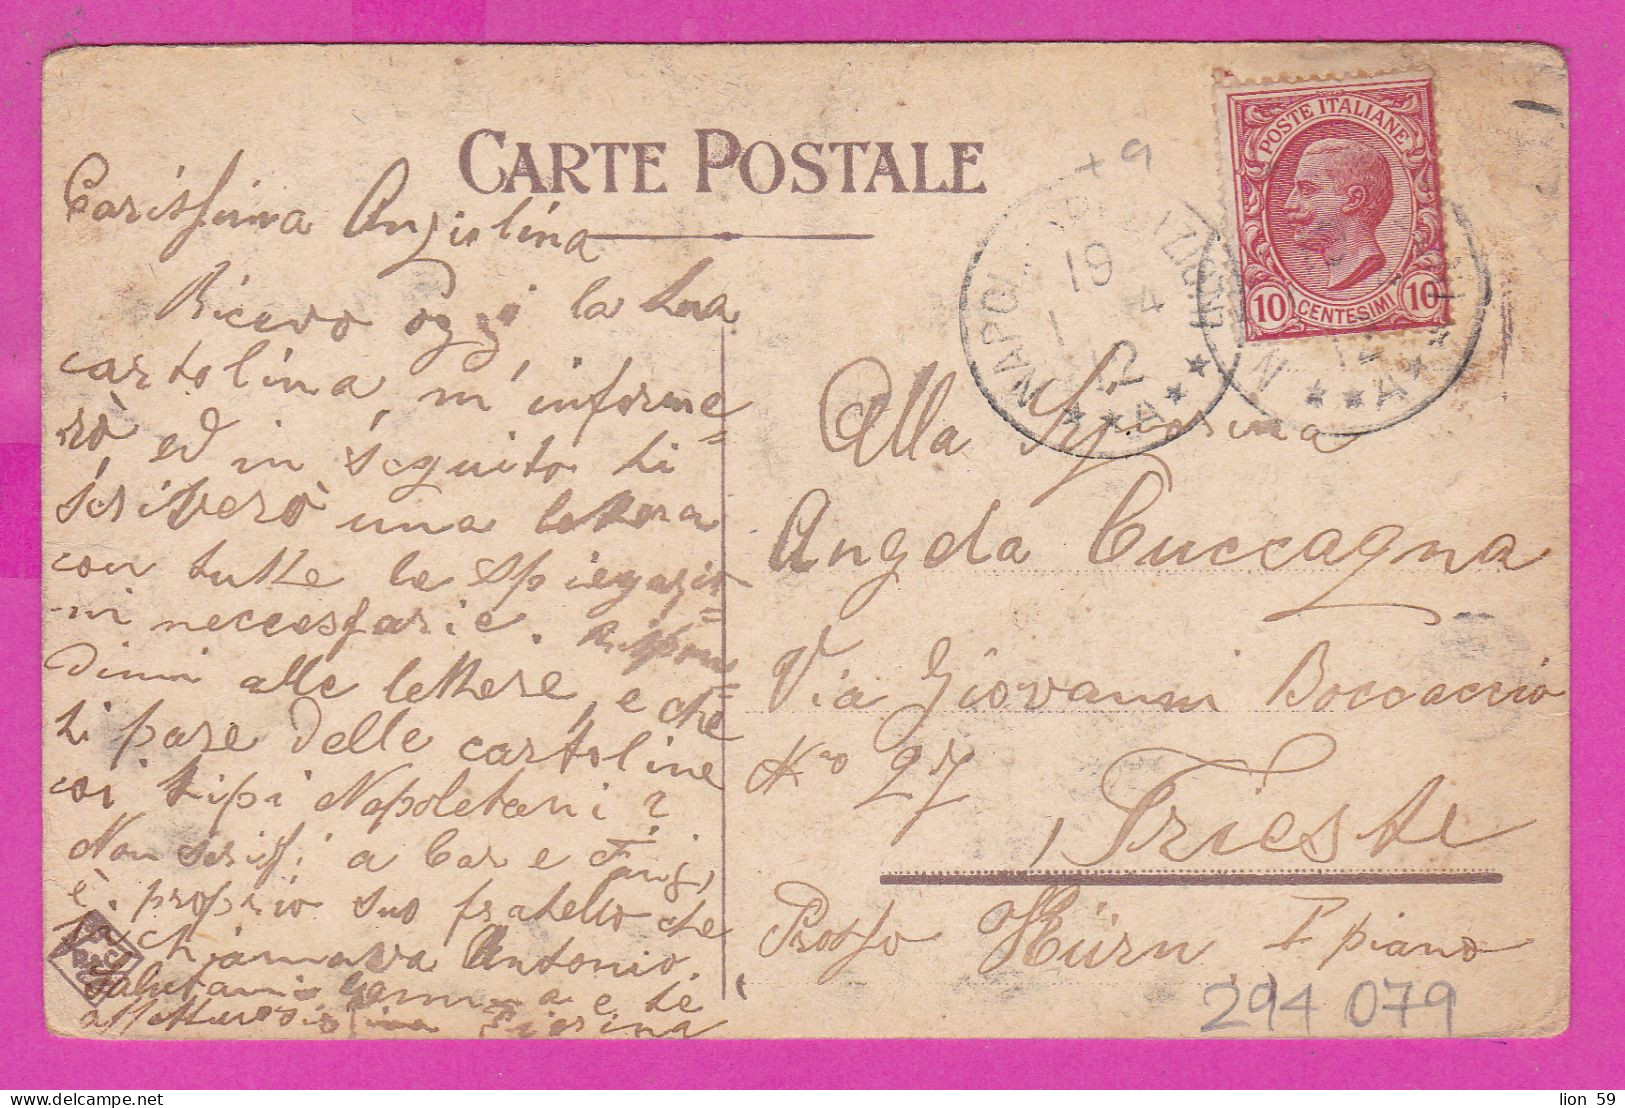 CARTE POSTALE
Carissima Angiolina
Ricevo oggi la tua
cartolina, m'informe=
rò, ed in seguito ti
scriverò una lettera
con tutte le spiegazio=
ni necessarie. Rispon=
dimi alle lettere, e che
ti pare delle cartoline
coi tipi Napoletani?
Non scrissi a
è proprio suo fratello che
si chiamava Antonio.
Salutami Gemma e te
Pierina
POSTE ITALIANE
10 CENTESIMI 10
+9
NAPOLI
19
1 4
12
* * A * *
* * A * *
Alla Signorina
Angela Cuccagna
Via Giovanni Boccaccio
No 27
Trieste
Presso Hürn I piano
294 079
lion 59